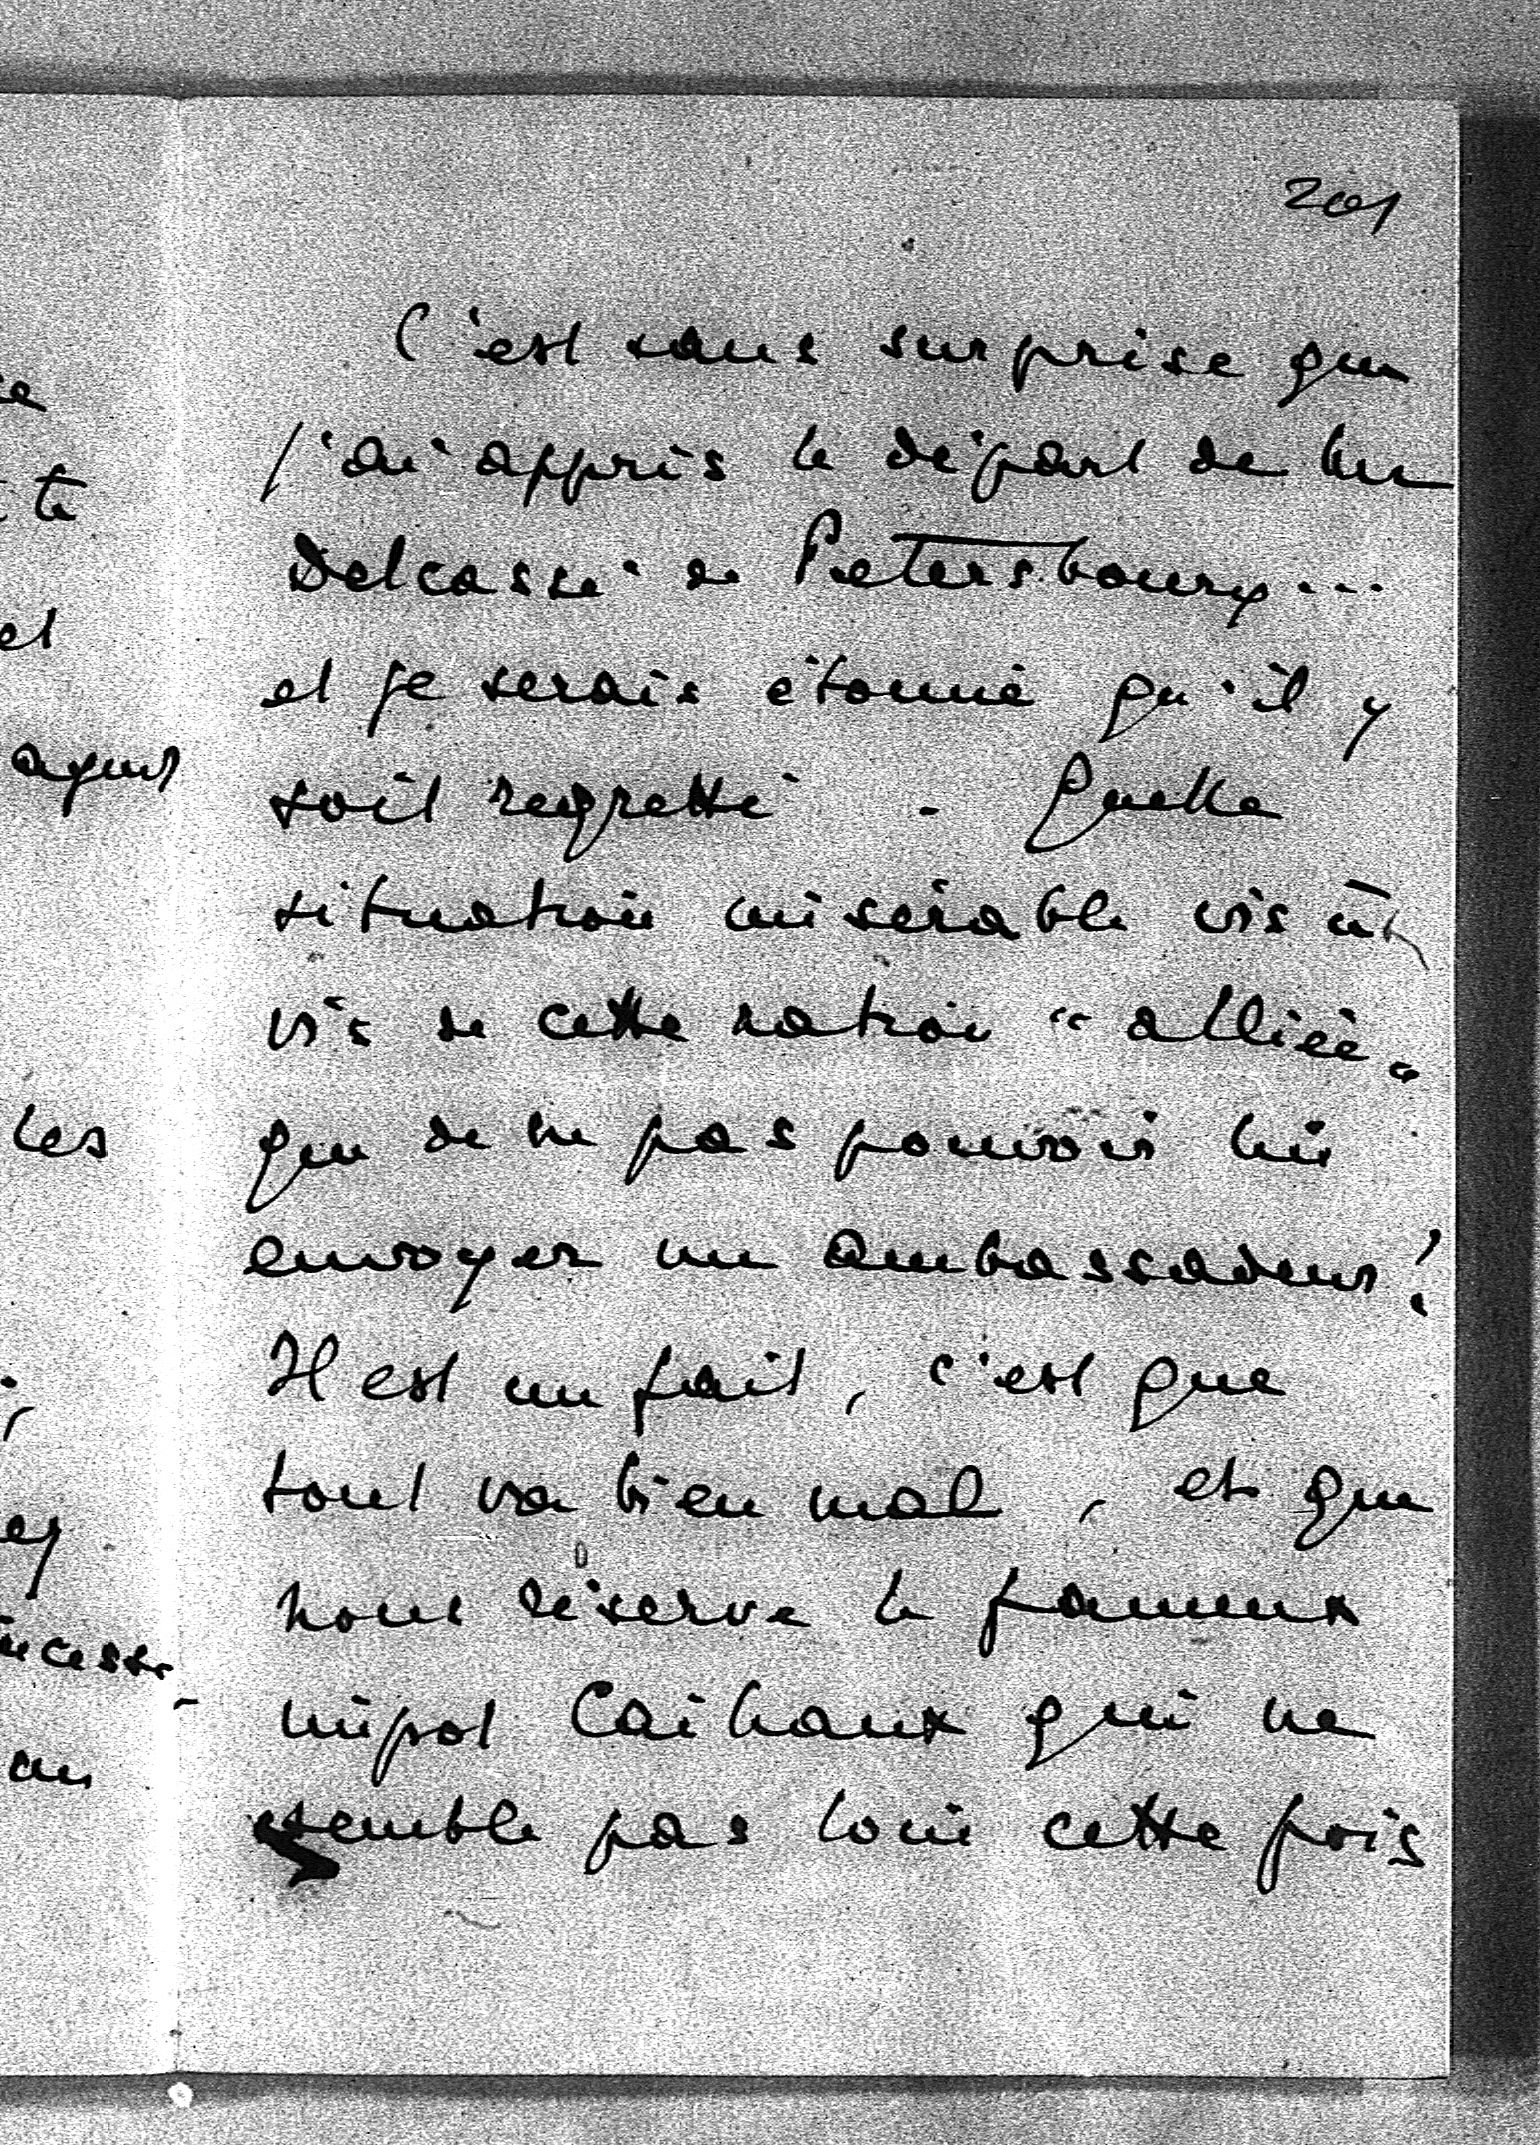 201
C'est sans surprise que
j'ai appris le départ de Mr
Delcassé de Pietersbourg...
et je serais étonné qu'il y
soit regretté. Quelle
situation misérable vis à
vis de cette nation "alliée"
que de ne pas pouvoir lui
envoyer un ambassadeur!
Il est un fait, c'est que
tout va bien mal, et que
nous réserve le fameux
impot Caihaux qui ne
semble pas loin cette fois
te
et
les
au